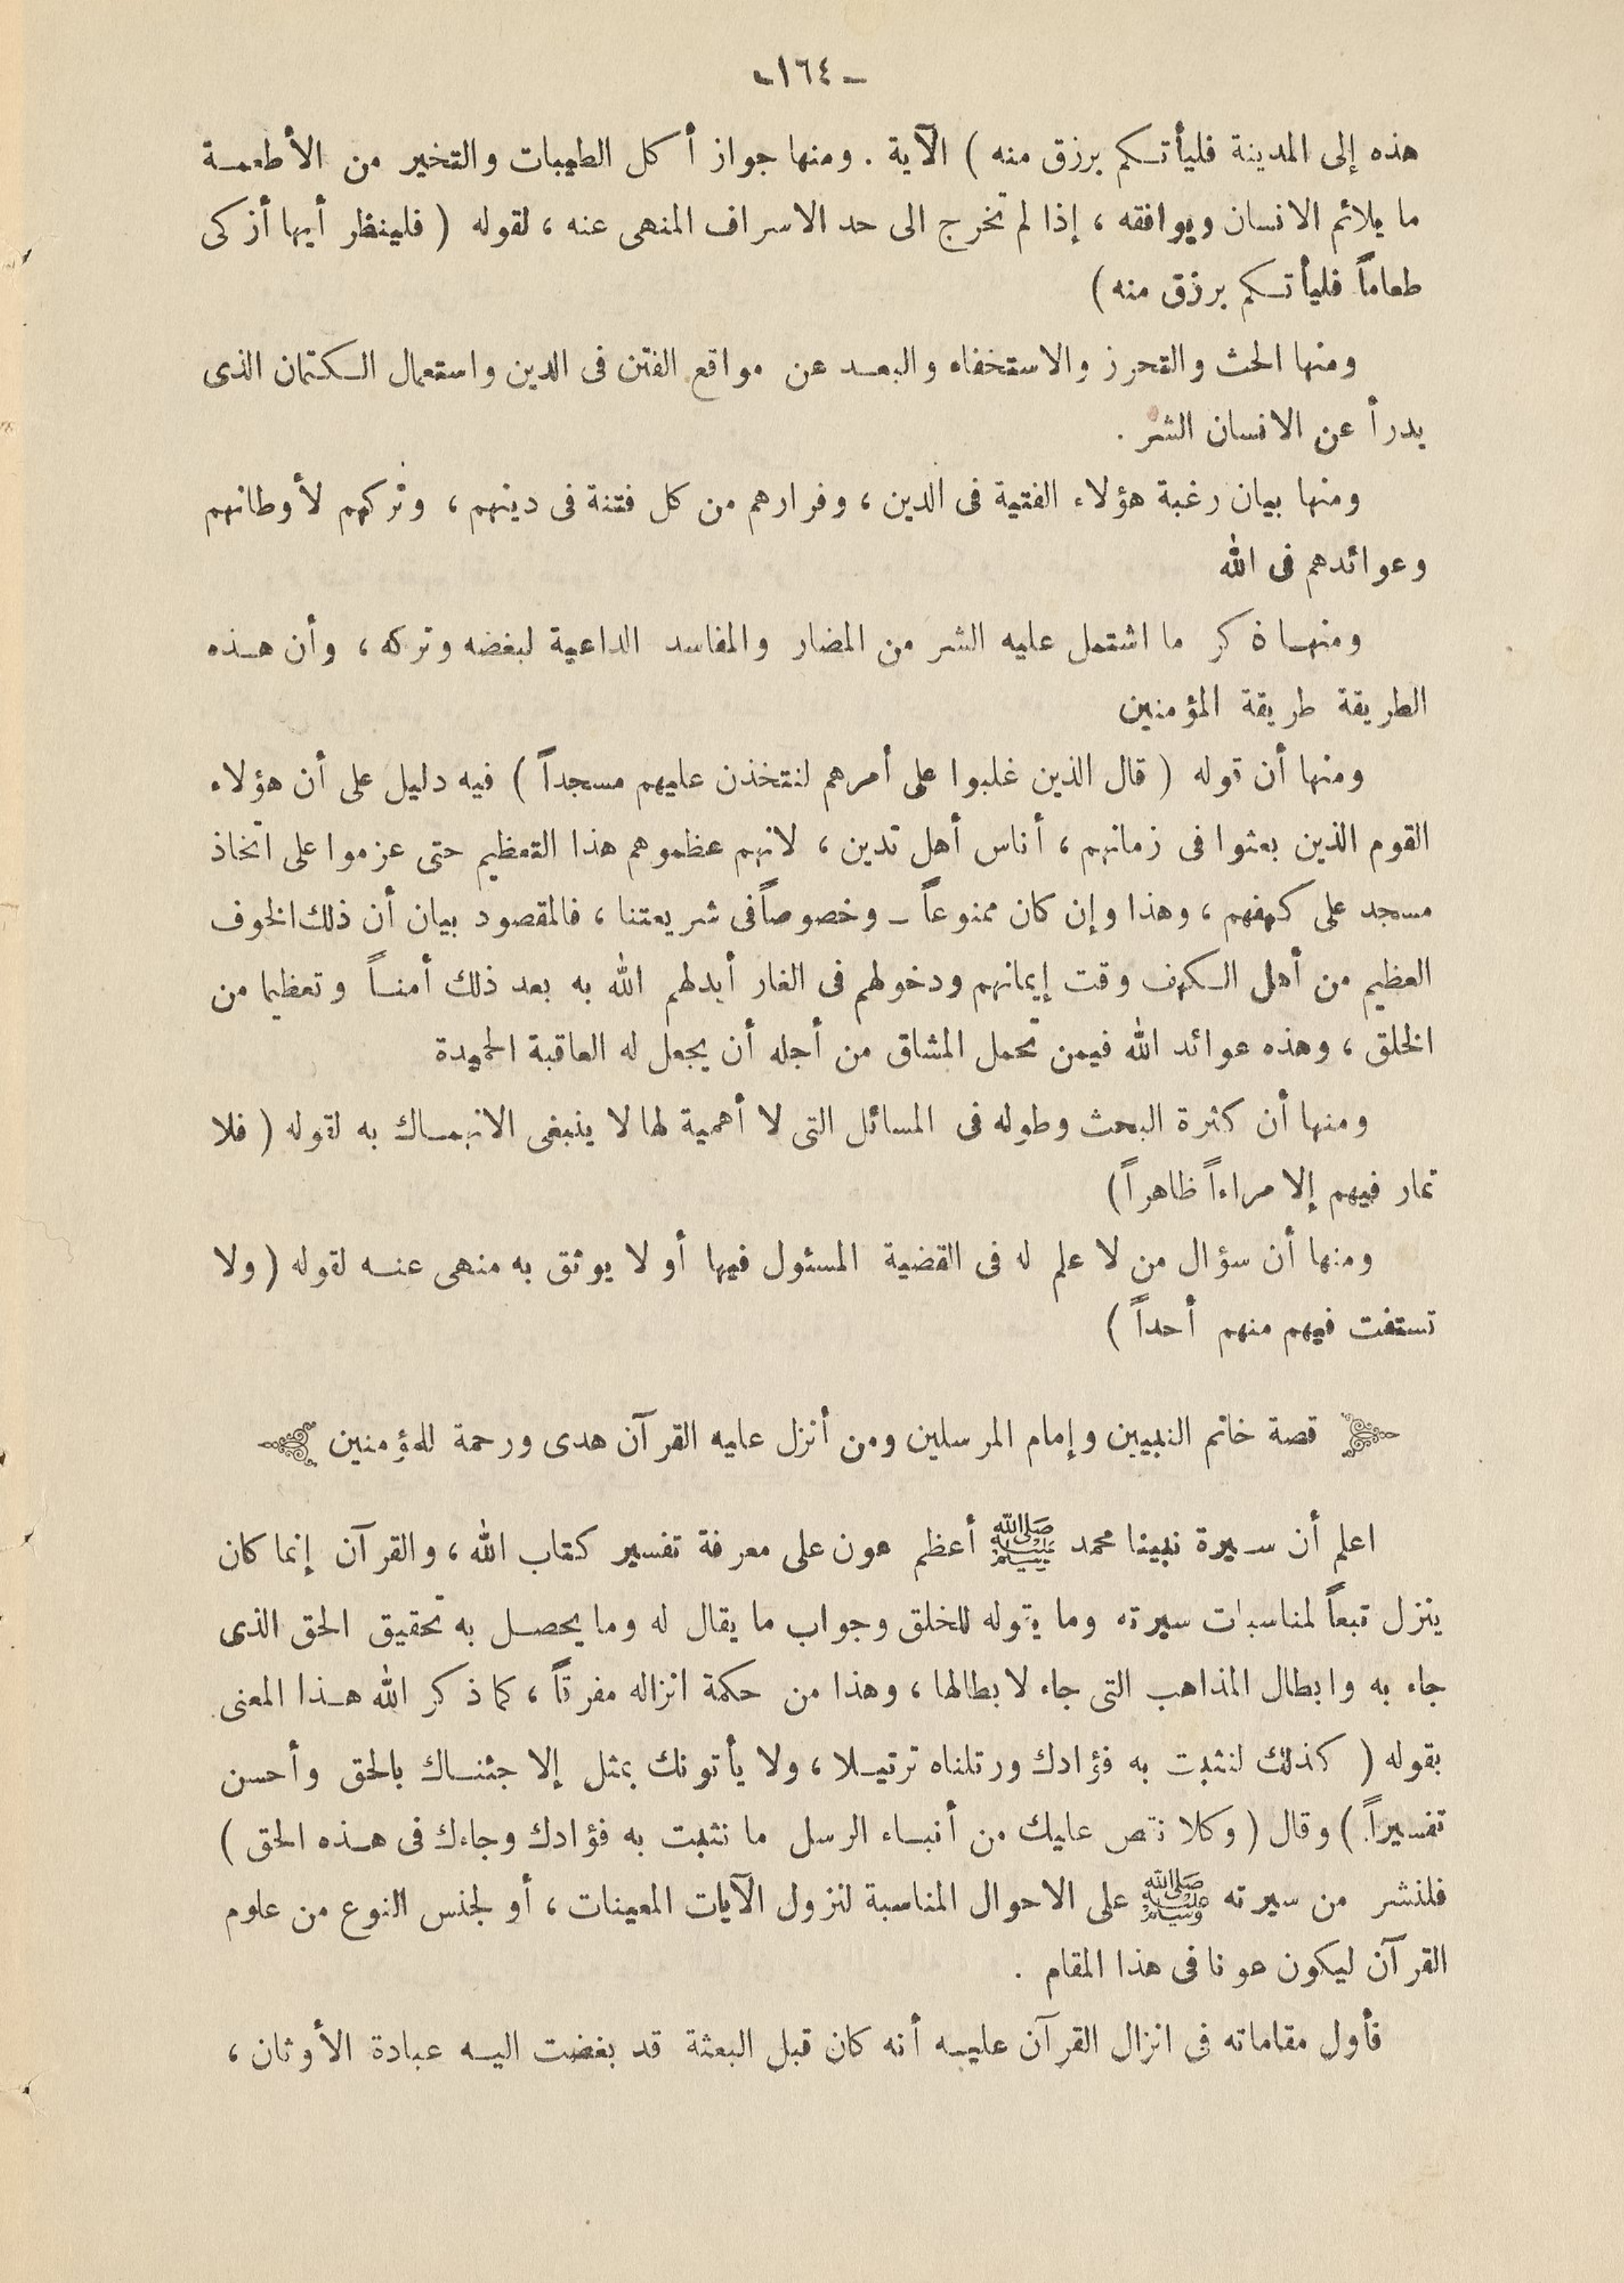 ـ ١٦٤ ـ
هذه إلى المدينة فليأتكم برزق منه ) الآية . ومنها جواز أكل الطيبات والتخير من الأطعمة
ما يلائم الانسان ويوافقه ، إذا لم تخرج الى حد الاسراف المنهى عنه ، لقوله ( فلينظر أيها أزكى
طعاماً فليأتكم برزق منه )
ومنها الحث والتحرز والاستخفاء والبعد عن مواقع الفتن فى الدين واستعمال الكتمان الذى
يدرأ عن الانسان الشر .
ومنها بيان رغبة هؤلاء الفتية فى الدين ، وفرارهم من كل فتنة فى دينهم ، وتركهم لأوطانهم
وعوائدهم فى الله
ومنها ذكر ما اشتمل عليه الشر من المضار والمفاسد الداعية لبغضه وتركه ، وأن هذه
الطريقة طريقة المؤمنين
ومنها أن قوله ( قال الذين غلبوا على أمرهم لنتخذن عليهم مسجداً ) فيه دليل على أن هؤلاء
القوم الذين بعثوا فى زمانهم ، أناس أهل تدين ، لانهم عظموهم هذا التعظيم حتى عزموا على اتخاذ
مسجد على كهفهم ، وهذا وإن كان ممنوعاً ـ وخصوصاً فى شريعتنا ، فالمقصود بيان أن ذلك الخوف
العظيم من أهل الكهف وقت إيمانهم ودخولهم فى الغار أبدلهم الله به بعد ذلك أمناً وتعظيما من
الخلق ، وهذه عوائد الله فيمن تحمل المشاق من أجله أن يجعل له العاقبة الحميدة
ومنها أن كثرة البحث وطوله فى المسائل التى لا أهمية لها لا ينبغى الانهماك به لقوله ( فلا
تمار فيهم إلا مراءاً ظاهراً )
ومنها أن سؤال من لا علم له فى القضية المسئول فيها أو لا يوثق به منهى عنه لقوله ( ولا
تستفت فيهم منهم أحداً )
قصة خاتم النبيين وإمام المرسلين ومن أنزل عليه القرآن هدى ورحمة للمؤمنين
اعلم أن سيرة نبينا محمد ﷺ أعظم عون على معرفة تفسير كتاب الله ، والقرآن إنما كان
ينزل تبعاً لمناسبات سيرته وما يقوله للخلق وجواب ما يقال له وما يحصل به تحقيق الحق الذى
جاء به وابطال المذاهب التى جاء لابطالها ، وهذا من حكمة انزاله مفرقاً ، كما ذكر الله هذا المعنى
بقوله ( كذلك لنثبت به فؤادك ورتلناه ترتيلا ، ولا يأتونك بمثل إلا جئناك بالحق وأحسن
تفسيراً ) وقال ( وكلا نقص عليك من أنباء الرسل ما نثبت به فؤادك وجاءك فى هذه الحق )
فلنشر من سيرته ﷺ على الاحوال المناسبة لنزول الآيات المعينات ، أو لجنس النوع من علوم
القرآن ليكون عونا فى هذا المقام .
فأول مقاماته فى انزال القرآن عليه أنه كان قبل البعثة قد بغضت اليه عبادة الأوثان ،